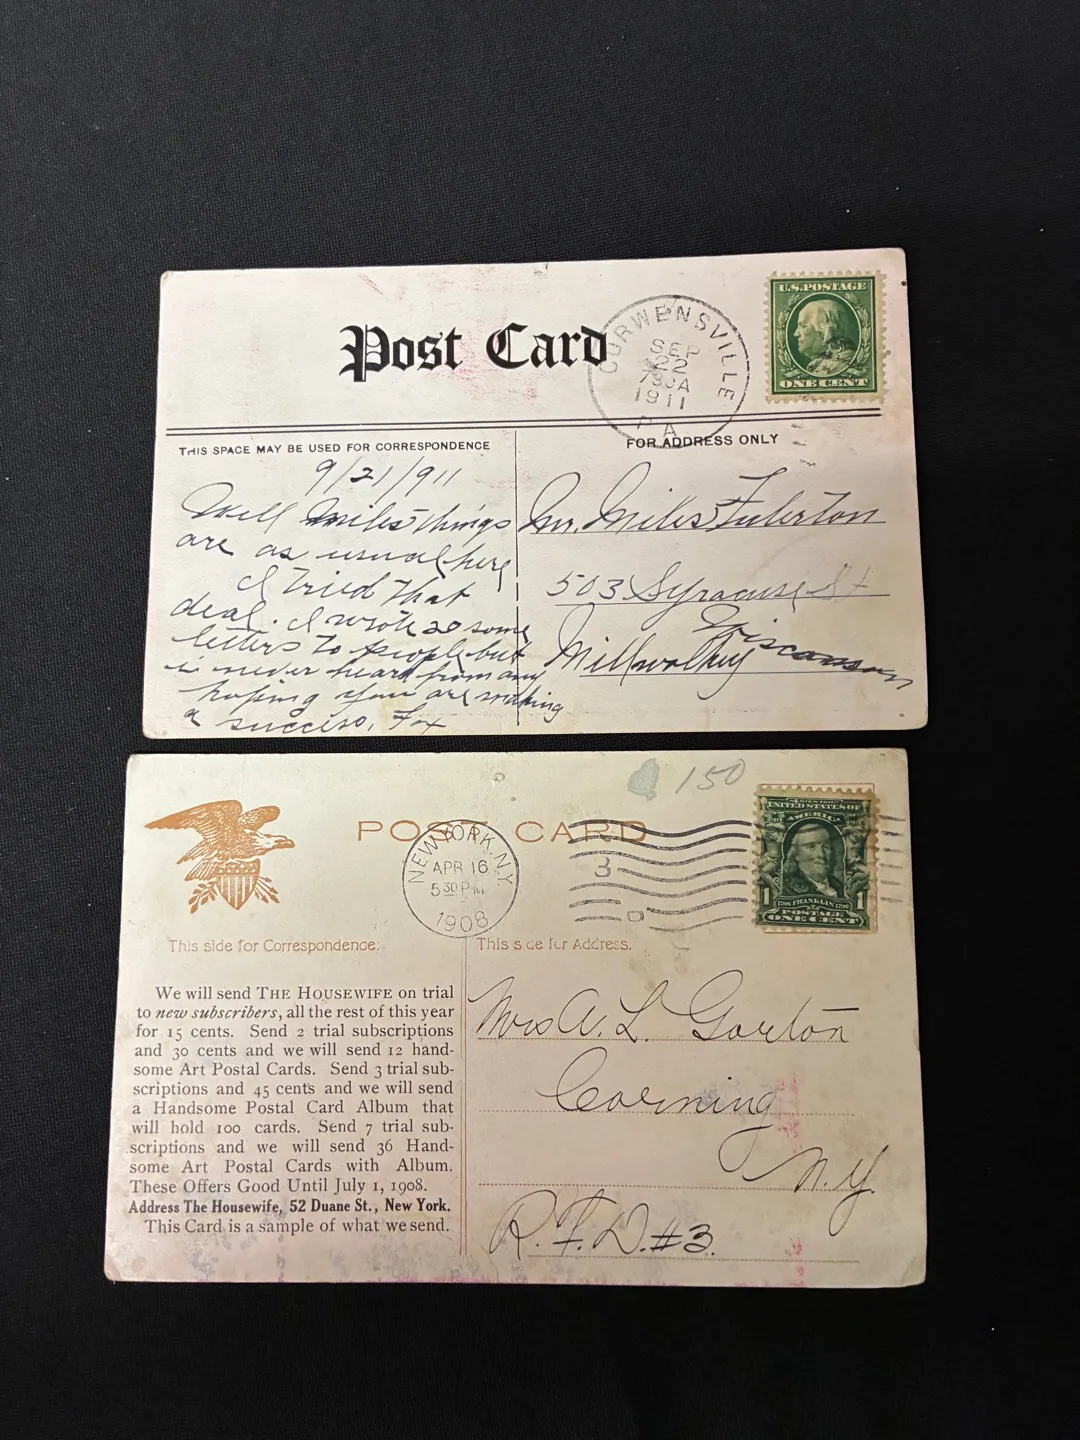 Post Card
CURWENSVILLE
SEP
22
1911
PA
U.S. POSTAGE
ONE CENT
THIS SPACE MAY BE USED FOR CORRESPONDENCE
FOR ADDRESS ONLY
9/21/911
Well Miles things
are as usual here
I tried that
deal. I wrote 20 some
letters to people but
never heard from any
hoping you are making
a success. Fox
Mr. Miles Fulerton
503 Syracuse St
Millwalkey
POST CARD
150
NEW YORK, N.Y.
APR 16
5 30 PM
1908
3
D
SERIES 1902
UNITED STATES OF
AMERICA
1 1
FRANKLIN
POSTAGE
ONE CENT
This side for Correspondence.
This side for Address.
We will send THE HOUSEWIFE on trial
to new subscribers, all the rest of this year
for 15 cents. Send 2 trial subscriptions
and 30 cents and we will send 12 hand-
some Art Postal Cards. Send 3 trial sub-
scriptions and 45 cents and we will send
a Handsome Postal Card Album that
will hold 100 cards. Send 7 trial sub-
scriptions and we will send 36 Hand-
some Art Postal Cards with Album.
These Offers Good Until July 1, 1908.
Address The Housewife, 52 Duane St., New York.
This Card is a sample of what we send.
Mrs A. L. Gorton
Corning
N.Y.
R.F.D. #3.